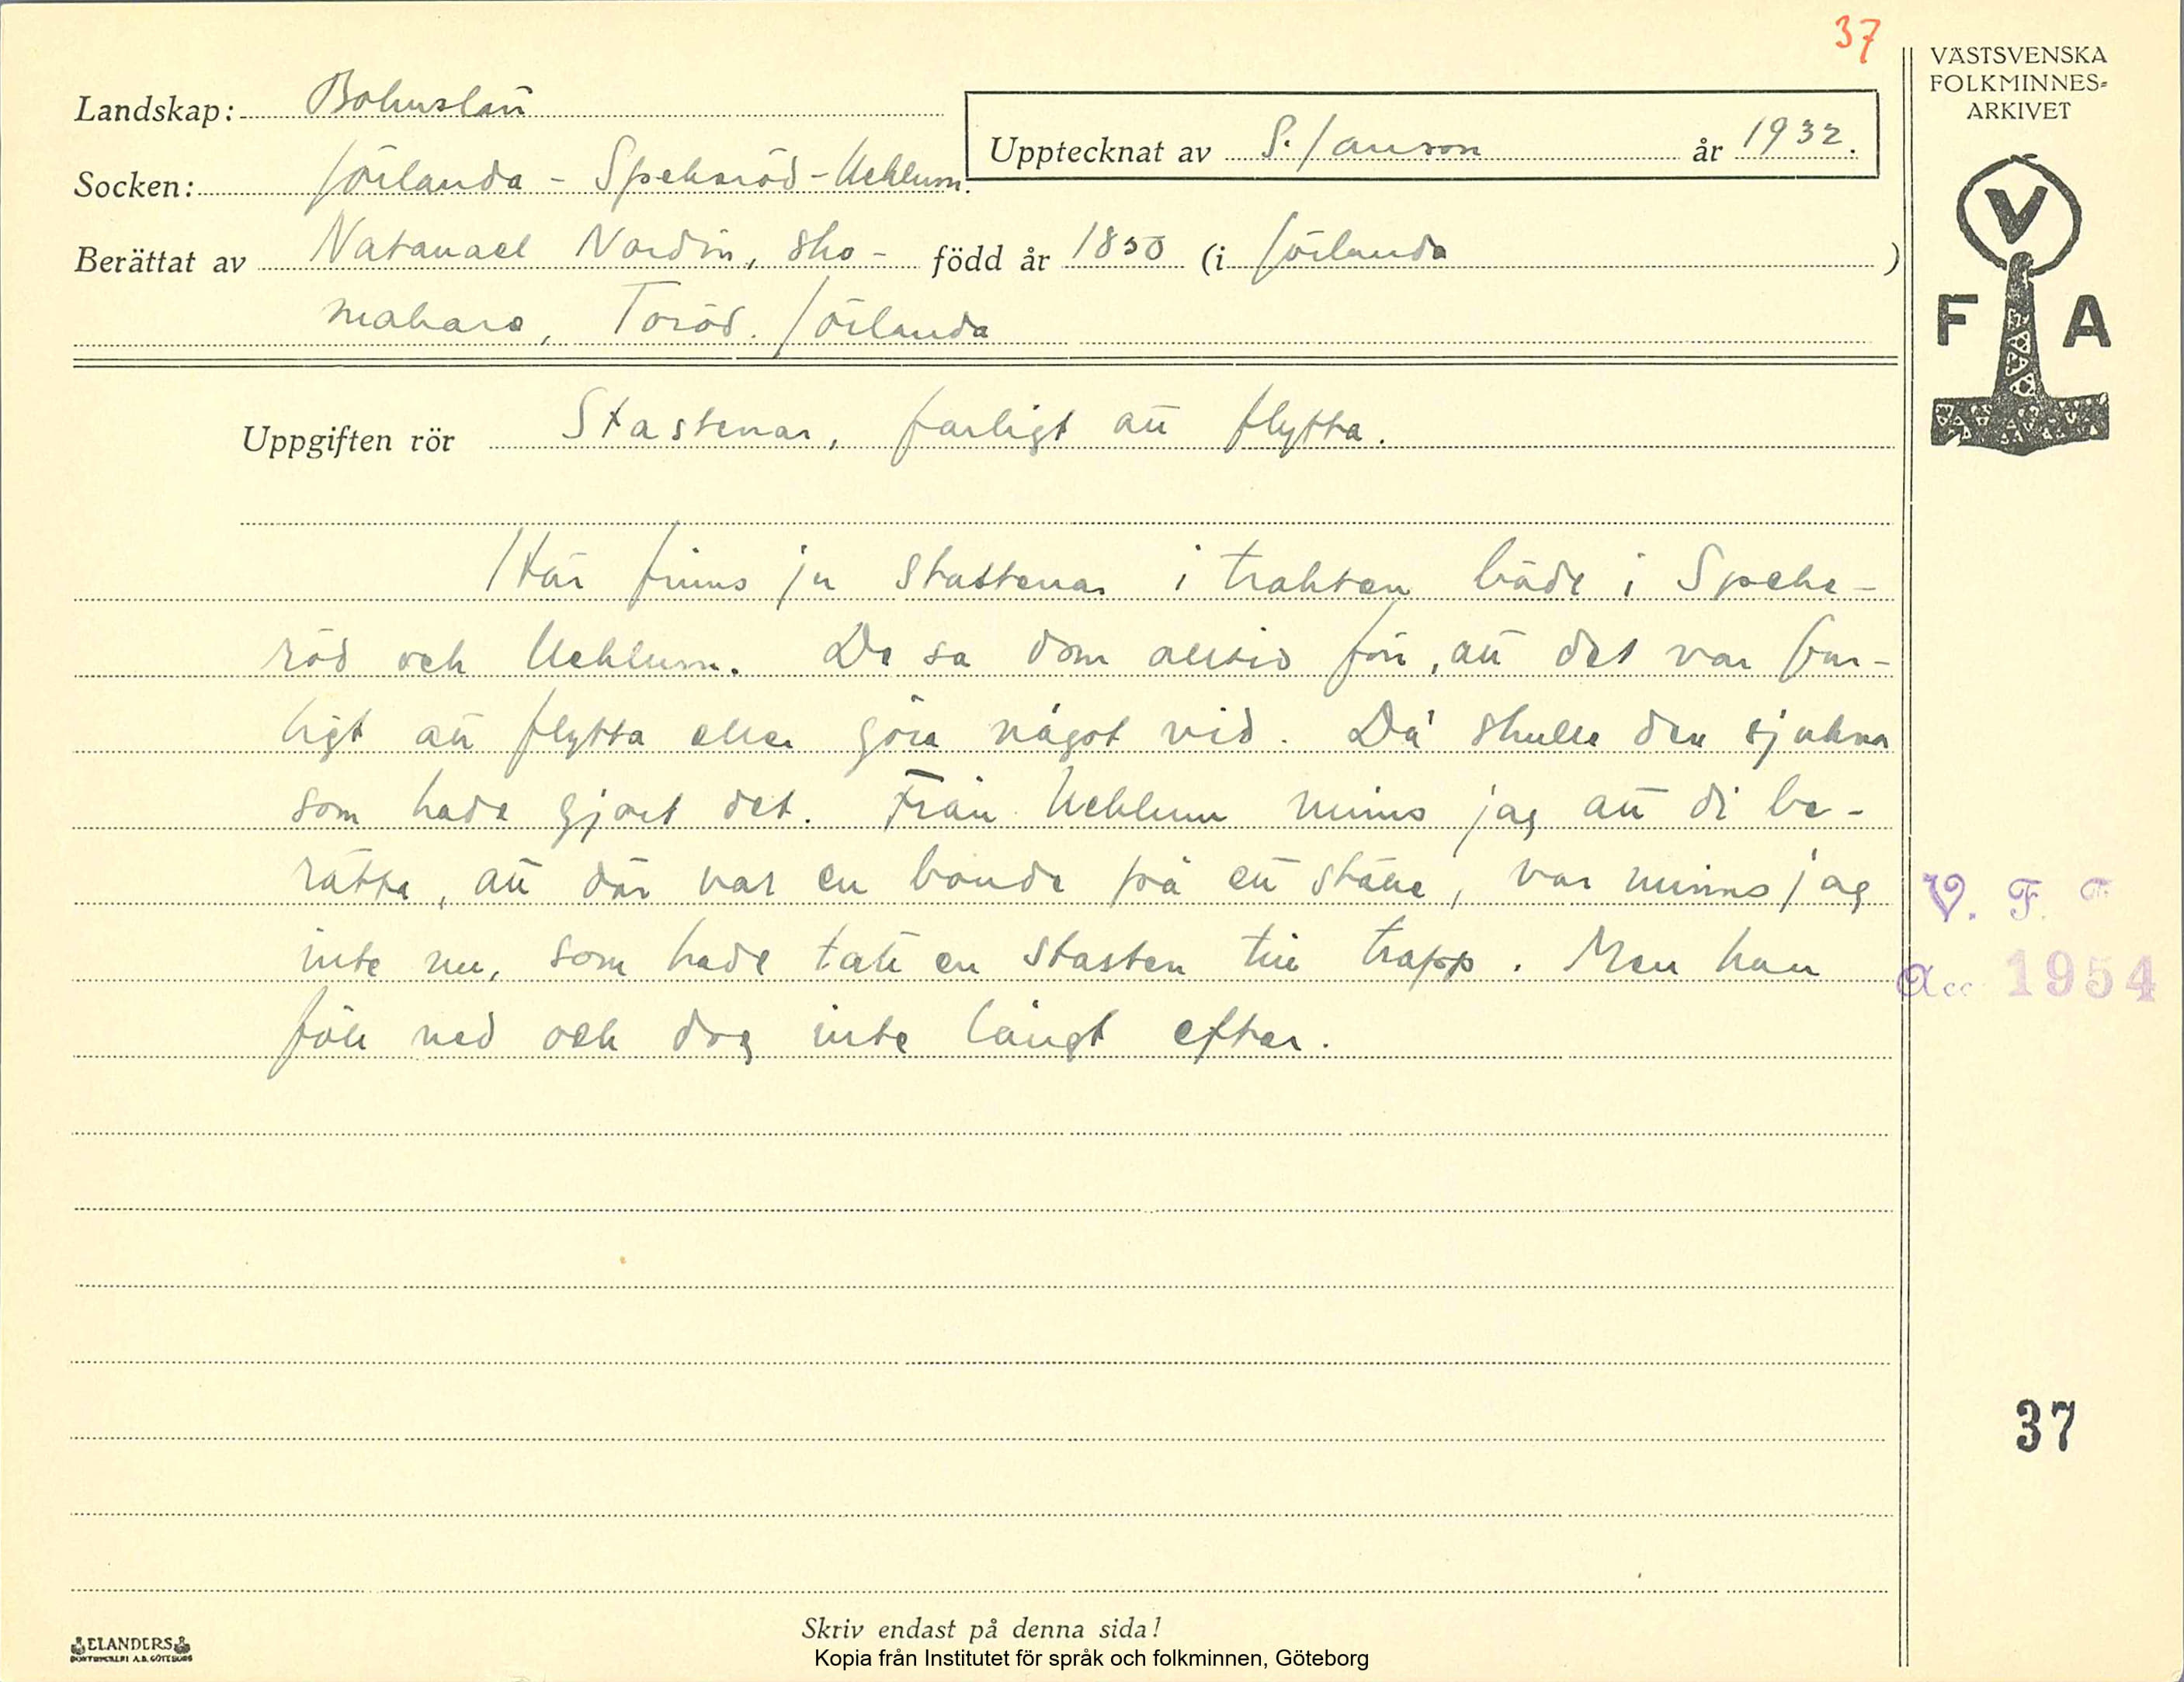 37
VÄSTSVENSKA
FOLKMINNES-
ARKIVET
Landskap: Bohuslän
Upptecknat av S. Janson år 1932.
Socken: Jörlanda - Spekeröd - Ucklum.
Berättat av Natanael Nordin, sko- född år 1850 (i Jörlanda )
makare, Toröd. Jörlanda
V
F A
Uppgiften rör Stastenar, farligt att flytta.
Här finns ju stastenar i trakten både i Speke-
röd och Ucklum. De sa dom alltid förr, att det var far-
ligt att flytta eller göra något vid. Då skulle den sjukna
som hade gjort det. Från Ucklum minns jag att di be-
rätta, att där var en bonde på ett ställe, var minns jag
inte nu, som hade tatt en stasten till trapp. Men han
föll ned och dog inte långt efter.
V. F. F.
Acc 1954
37
Skriv endast på denna sida!
ELANDERS
BOKTRYCKERI A.B. GÖTEBORG
Kopia från Institutet för språk och folkminnen, Göteborg